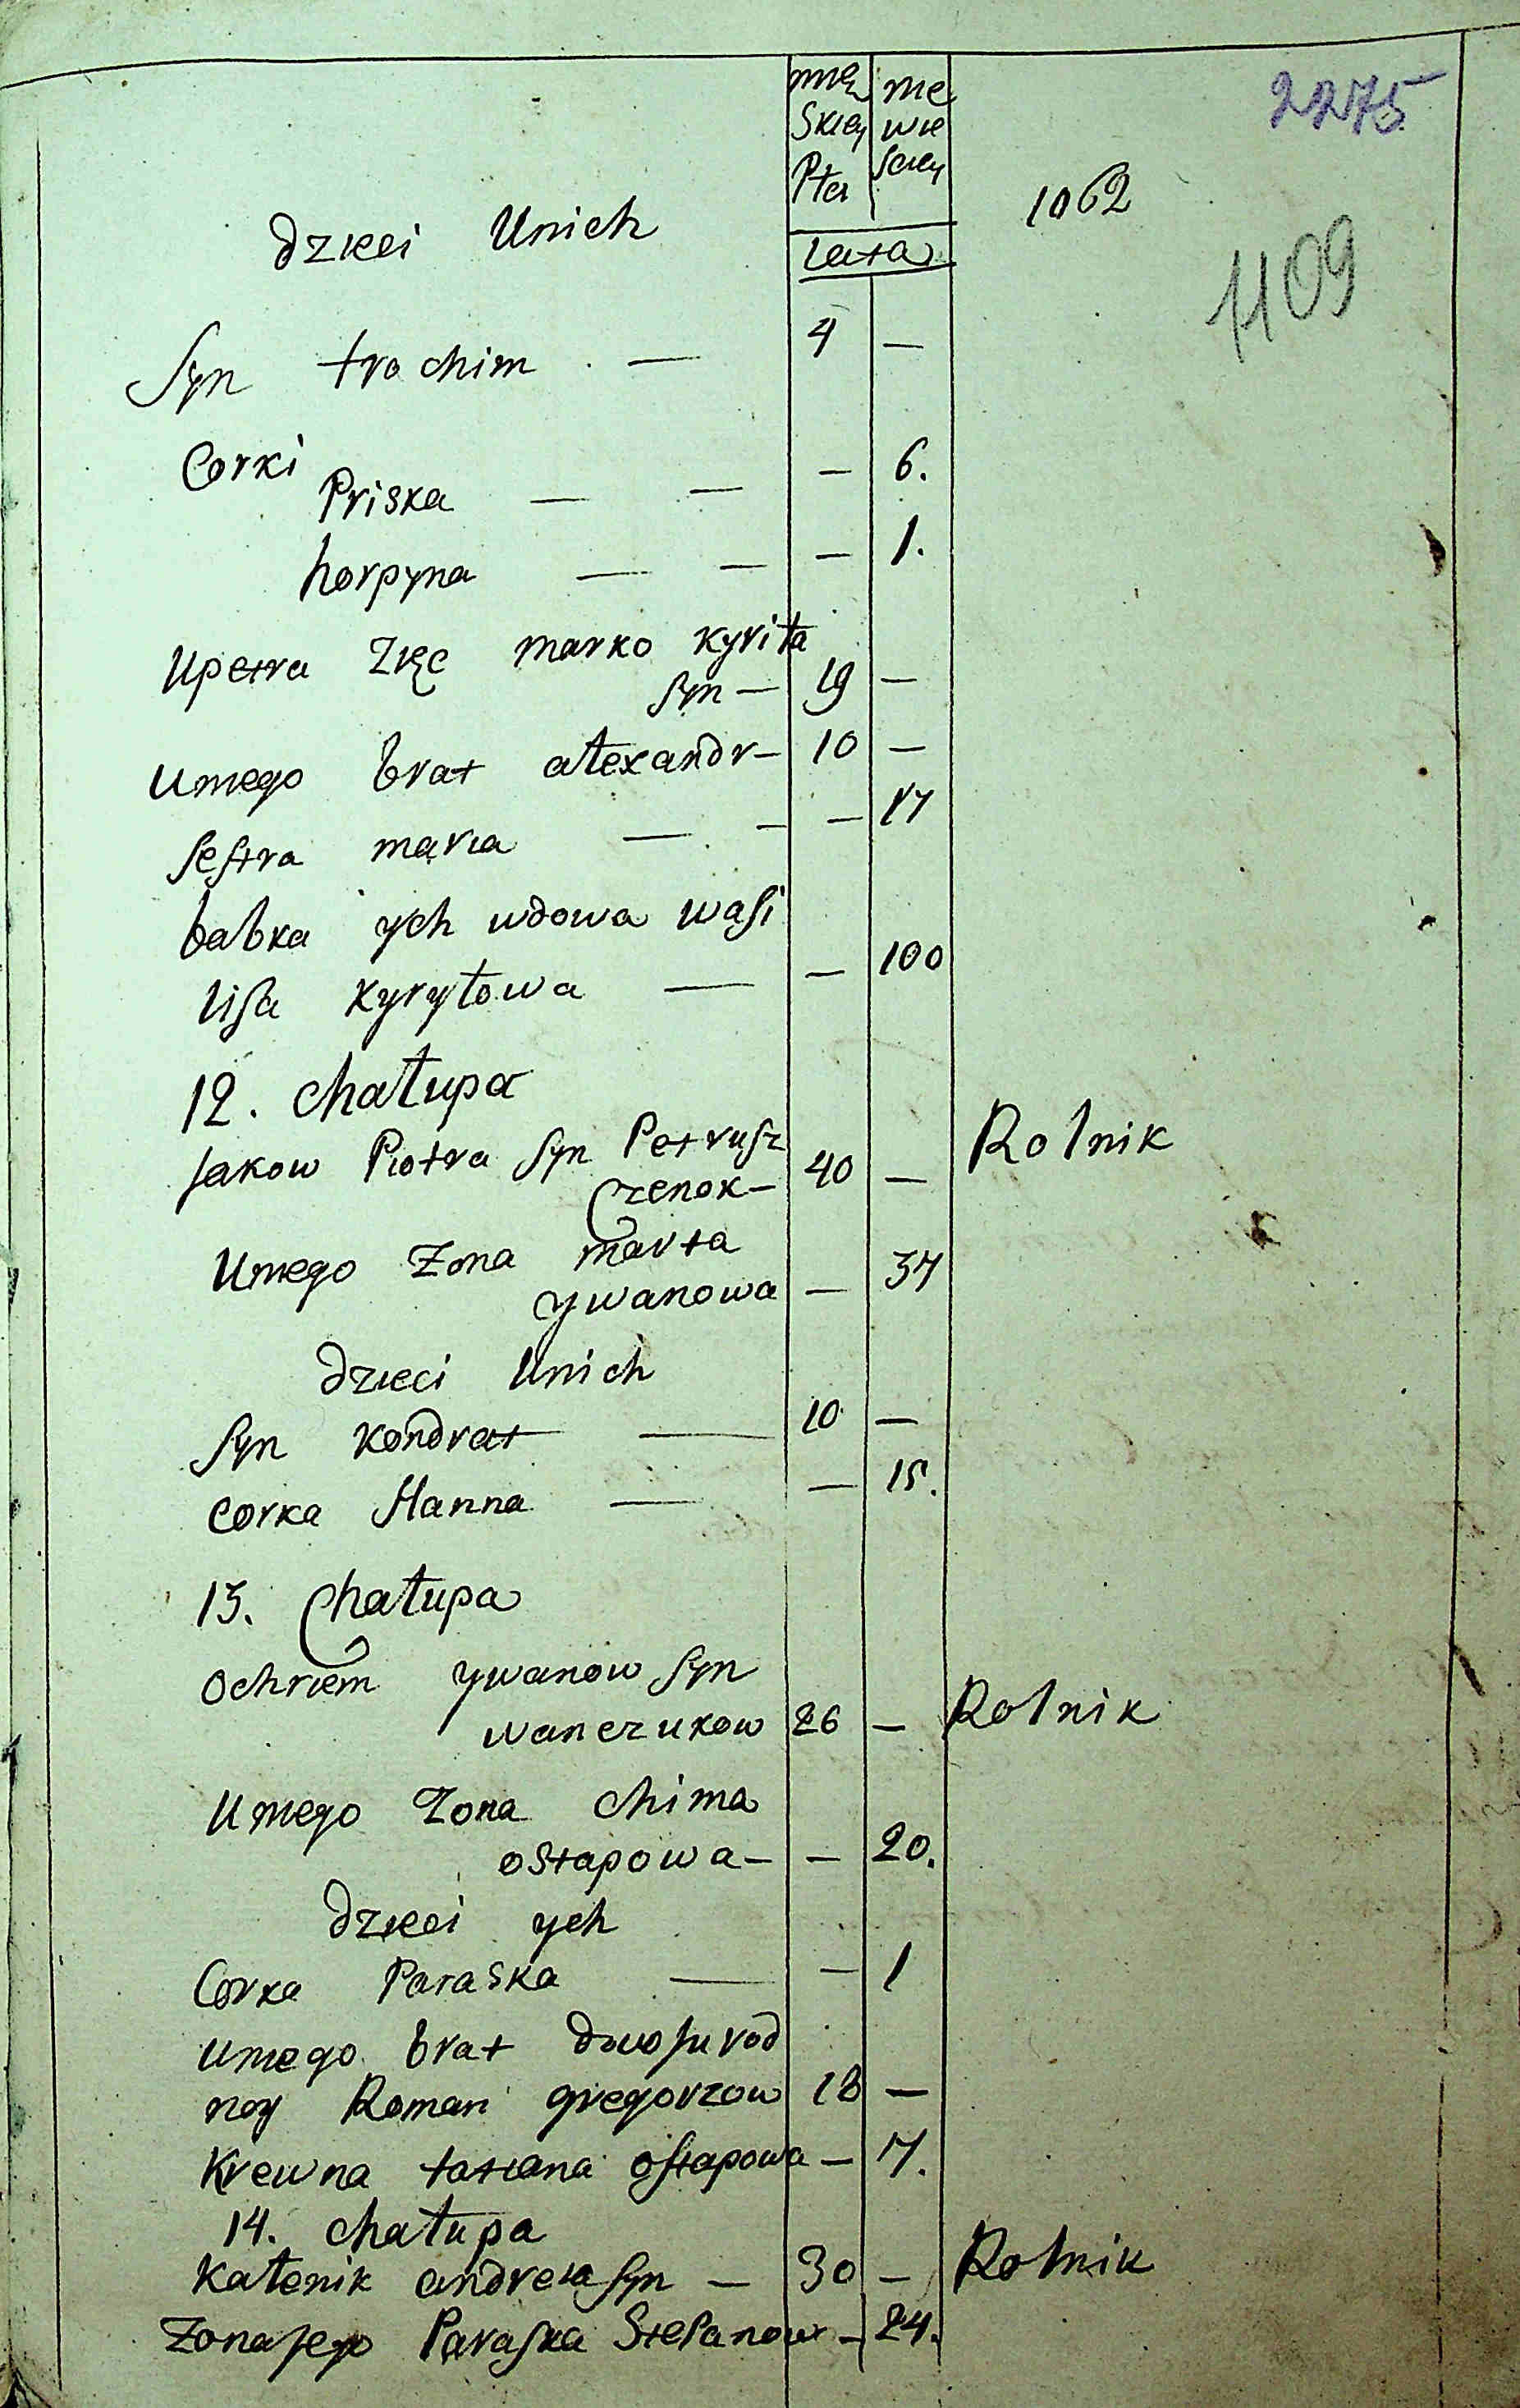 2275
męskiey Płci
niewiesciey
1062
dzieci Unich
Lata
1109
Syn trochim — 4 —
Corki
Priska — — — 6.
horpyna — — — 1.
Upetra Zięc marko kyriła
syn — 19 —
Uniego brat alexandr — 10 —
sestra maria — — — 17
babka ych wdowa wasi
lisa kyryłowa — — 100
12. chałupa
Jakow Piotra syn Petrusz
czenok — 40 — Rolnik
Uniego Zona marta
ywanowa — 37
dzieci Unich
Syn kondrat — 10 —
corka Hanna — — 15.
13. chałupa
ochriem ywanow syn
wanczukow 26 — Rolnik
Uniego Zona chima
ostapowa — — 20.
dzieci ych
Corka Paraska — — 1
Uniego brat dwosurod
noy Roman gregorzow 18 —
Krewna tatiana ostapowa — 7.
14. chałupa
kałenik andreia syn — 30 — Rolnik
Zona jego Paraska Stepanow — 24.